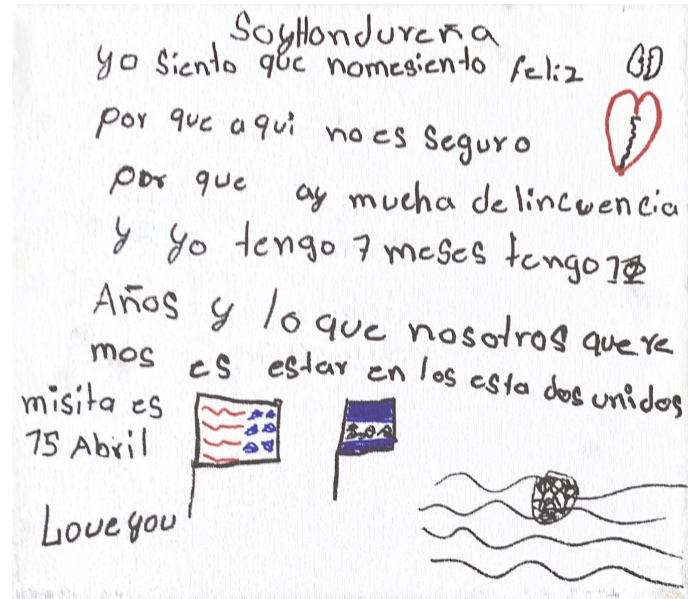 Soy Hondureña
yo siento que nomesiento feliz
por que aqui no es seguro
por que ay mucha delincuencia
y yo tengo 7 meses tengo
Años y lo que nosotros quere
mos es estar en los esta dos unidos
misita es
15 Abril
Love you